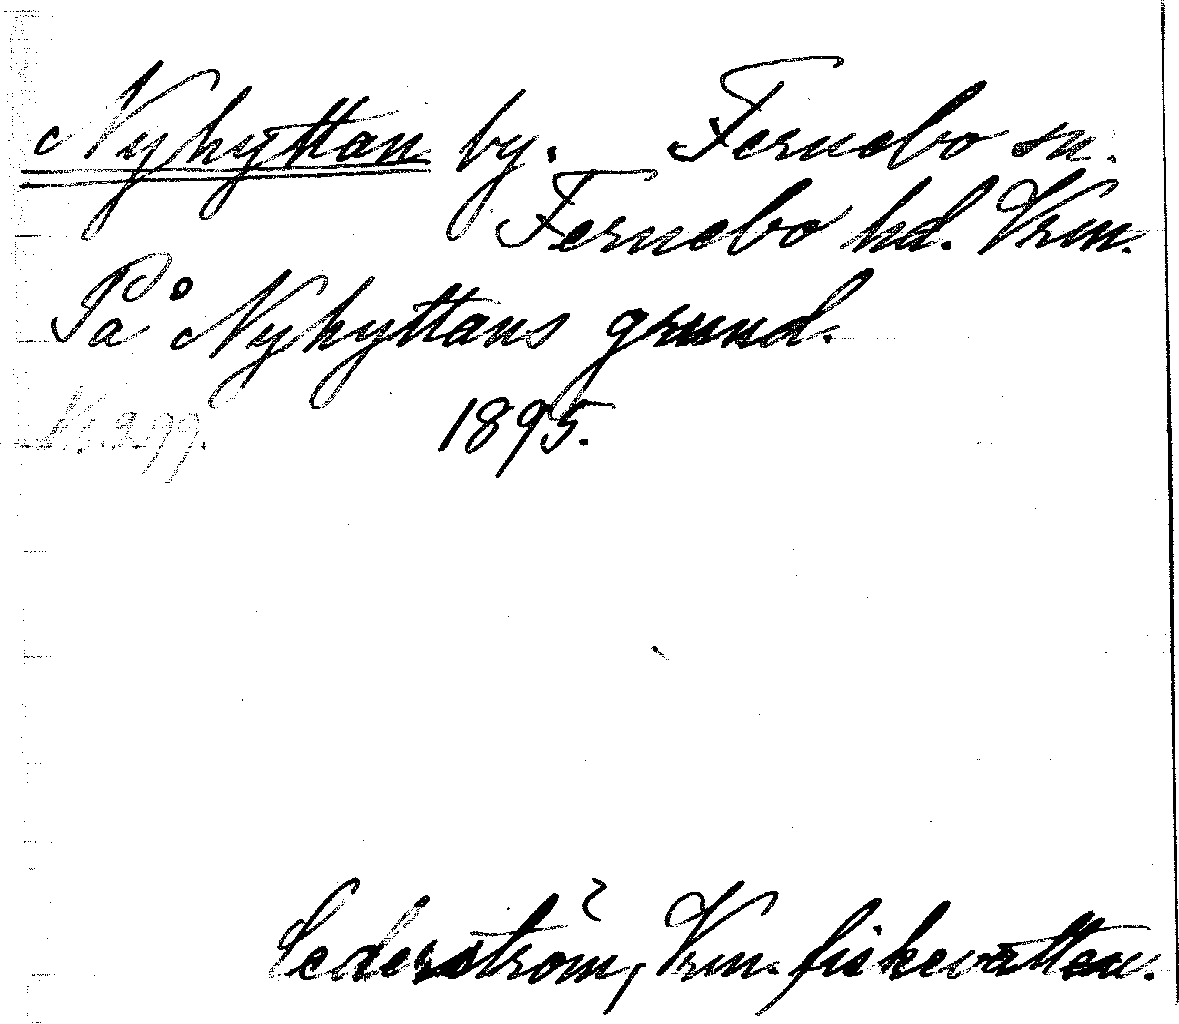 Nyhyttan by. Fernebo sn.
Fernebo hd. Vrm.
På Nyhyttans grund.
N:o 299. 1895.
Cederström, Vrm. fiskevatten.